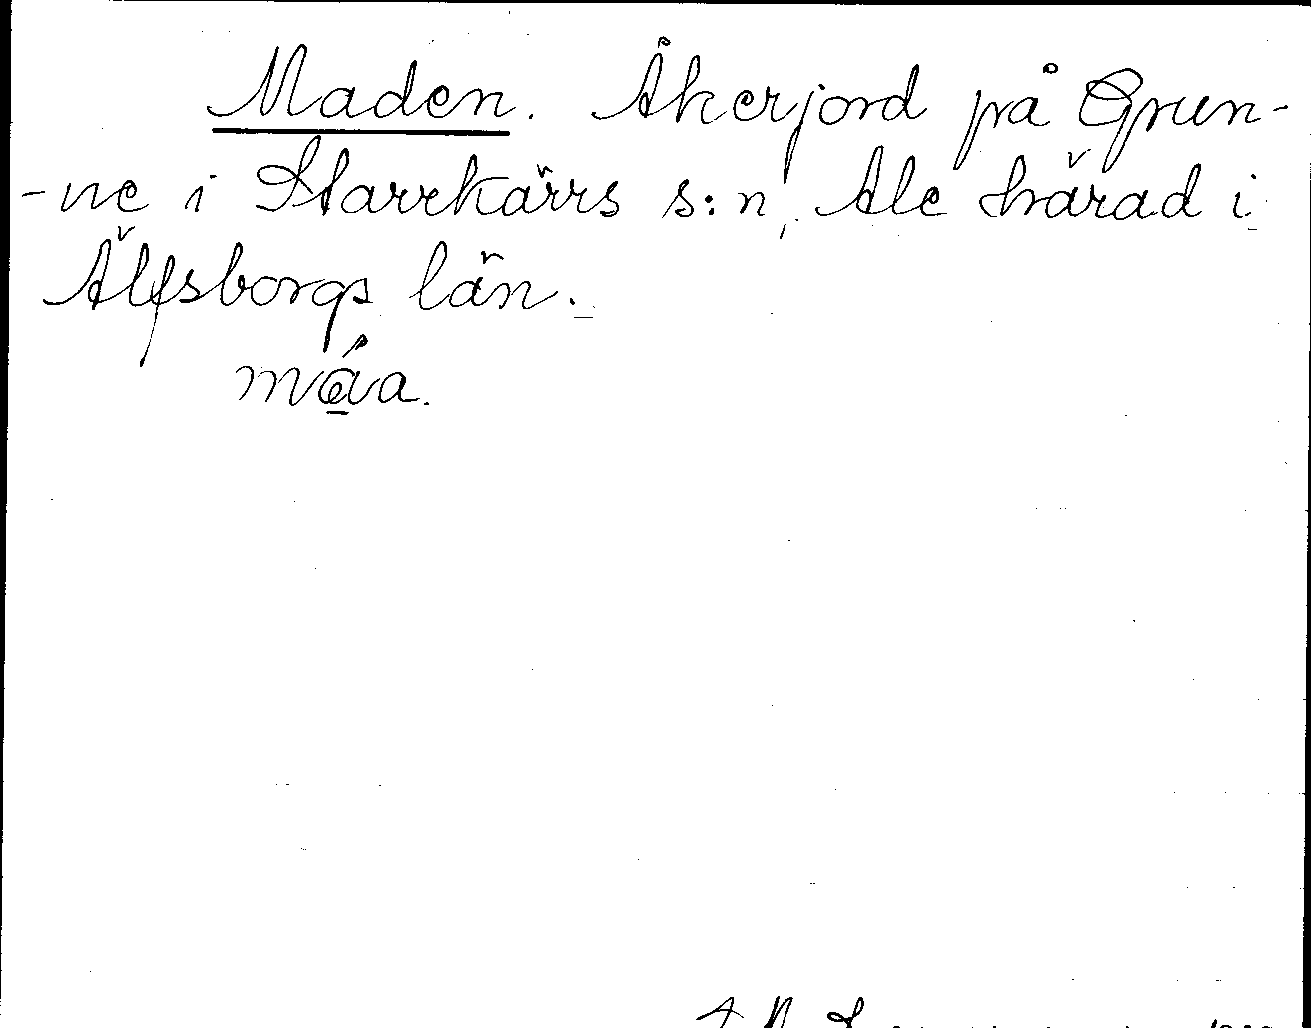 Maden. Åkerjord på Grun-
-ne i Starrkärrs s:n, Ale härad i
Älfsborgs län.
måa.